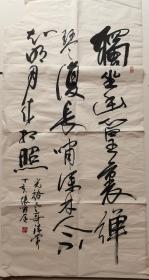 獨坐幽篁裏彈
琴復長嘯深林人不
知明月来相照